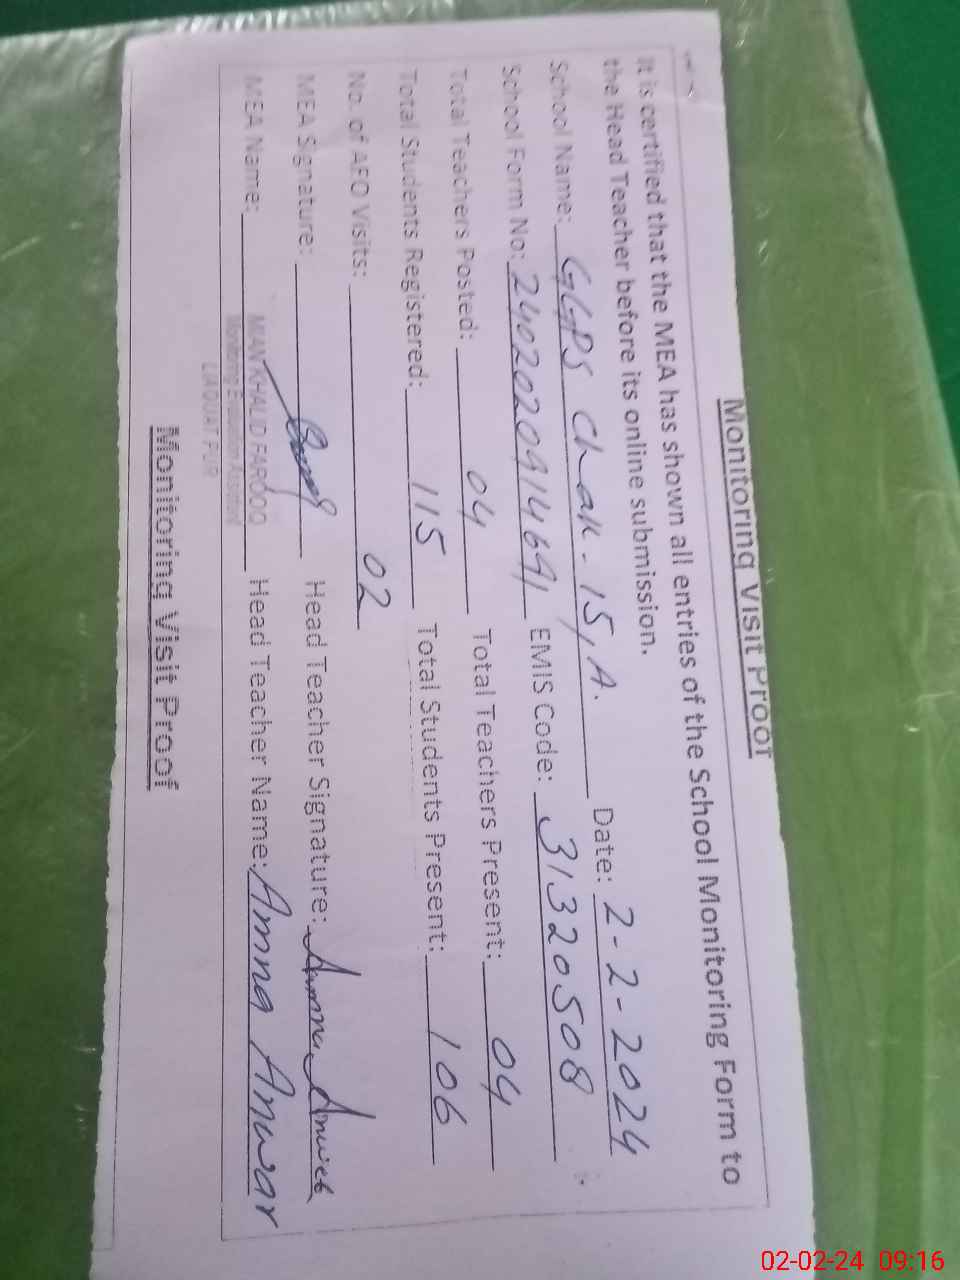 Monitoring Visit Proof
It is certified that the MEA has shown all entries of the School Monitoring Form to
the Head Teacher before its online submission.
School Name: GGPS Chak-15,A. Date: 2-2-2024
School Form No: 2402020914691 EMIS Code: 31320508
Total Teachers Posted: 04 Total Teachers Present: 04
Total Students Registered: 115 Total Students Present: 106
No. of AEO Visits: 02
MEA Signature: Head Teacher Signature: Amna Anwar
MEA Name: MIAN KHALID FAROOQ Head Teacher Name: Amna Anwar
Monitoring Evaluation Assistant
LIAQUAT PUR
Monitoring Visit Proof
02-02-24 09:16